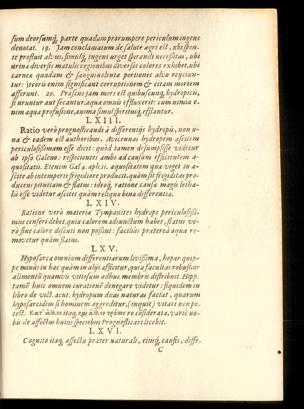 sum deorsumq́, parte quadam prorumpere periculum ingens
denotat. 19. Jam conclamatum de salute ægri est, ubi spon-
te profluit alvus, simulq́, ingens urget spirandi necessitas, ubi
urina diversi matulis regionibus diversos colores exhibet, ubi
carnea quadam & sanguinolenta portiones alvo rejiciun-
tur: jecoris enim significant corruptionem & citam mortem
afferunt. 20. Præsens jam mors est quibuscunq, hydropicis,
si uruntur aut secantur, aqua omnis effluxerit: cum nimia e-
nim aqua profusione, anima simul spiritusq́, effantur.
LXIII.
Ratio verò prognosticandi à differentijs hydropis, non u-
na & eadem est authoribus. Avicennas hydropem asciten
periculosissimam esse dicit: quòd tamen desumpsisse videtur
ab ipso Galeno: respicientes ambo ad causam efficientem a-
quositatis. Etenim Gal 4. aph. 11. aquositatem quæ vaget in a-
scite ab intemperie frigidiore produci, quàm sit frigiditas pro-
ducens pituitam & flatus: ideoq́, ratione causæ magis letha-
lis esse videtur ascites quàm reliqua bina differentia.
LXIV.
Ratione verò materia Tympanites hydrops periculosissi-
mus censeri debet, quia calorem aduuctum habet, flatus ve-
rò sine calore discuti non possint: facilius praterea aqua re-
movetur quàm flatus.
LXV.
Hyposarca omnium differentiarum levissima, hepar quip-
pe minus in hac quàm in alijs afficitur, quia facultas robustior
alimentū quamvis vitiosum adhuc membris distribuit. Hipp.
tamē huic omnem curationē denegare videtur: siquidem in
libro de vict. acut. hydropum duas naturas faciat, quarum
hyposarcidios si hominem aggreditur, (inquit) vitari non po-
test. Κατ᾽ ἄλλο ἰτaq, considerata, varie nobis
de affectus huius speciebus Prognosticari licebit.
LXVI.
Cognito itaq, affectu præter naturali, eiusq́, causis, diffe-
C